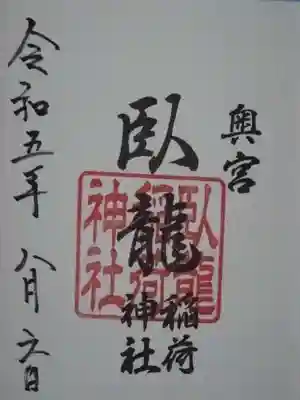 奥宮
臥龍
稲荷
神社
臥龍
稲荷
神社
令和五年 八月六日